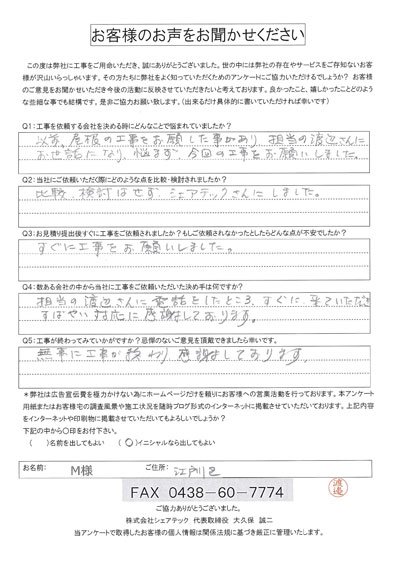 お客様のお声をお聞かせください
この度は弊社に工事をご用命いただき、誠にありがとうございました。世の中には弊社の存在やサービスをご存知ないお客
様が沢山いらっしゃいます。その方たちに弊社をよく知っていただくためのアンケートにご協力いただけるでしょうか？ お客様
のご意見をお聞かせいただき今後の活動に反映させていただきたいと考えております。良かったこと、嬉しかったことどのよう
な些細な事でも結構です。是非ご協力お願い致します。（出来るだけ具体的に書いていただければ幸いです）
Q1：工事を依頼する会社を決める時にどんなことで悩まれていましたか？
以前、屋根の工事をお願した事があり、担当の渡辺さんに
お世話になり、悩まず、今回の工事をお願いしました。
Q2：当社にご依頼いただく際にどのような点を比較・検討されましたか？
比較、検討はせず、シェアテックさんにしました。
Q3：お見積り提出後すぐに工事をご依頼されましたか？もしご依頼されなかったとしたらどんな点が不安でしたか？
すぐに工事をお願いしました。
Q4：数ある会社の中から当社に工事をご依頼いただいた決め手は何ですか？
担当の渡辺さんに電話をしたところ、すぐに来ていただき
すばやい対応に感謝しております。
Q5：工事が終わってみていかがですか？忌憚のないご意見を頂戴できましたら幸いです。
無事に工事が終わり感謝しております。
＊弊社は広告宣伝費を極力かけない為にホームページだけを頼りにお客様への営業活動を行っております。本アンケート
用紙またはお客様宅の調査風景や施工状況を随時ブログ形式のインターネットに掲載させていただいております。上記内容
をインターネットや印刷物に掲載させていただいてもよろしいでしょうか？
下記の中から〇印をお付下さい。
（　）名前を出してもよい　（〇）イニシャルなら出してもよい
お名前： M様 ご住所： 江戸川区
FAX 0438－60－7774
渡邉
ご協力ありがとうございました。
株式会社シェアテック 代表取締役 大久保 誠二
当アンケートで取得したお客様の個人情報は関係法規に基づき厳正に管理いたします。